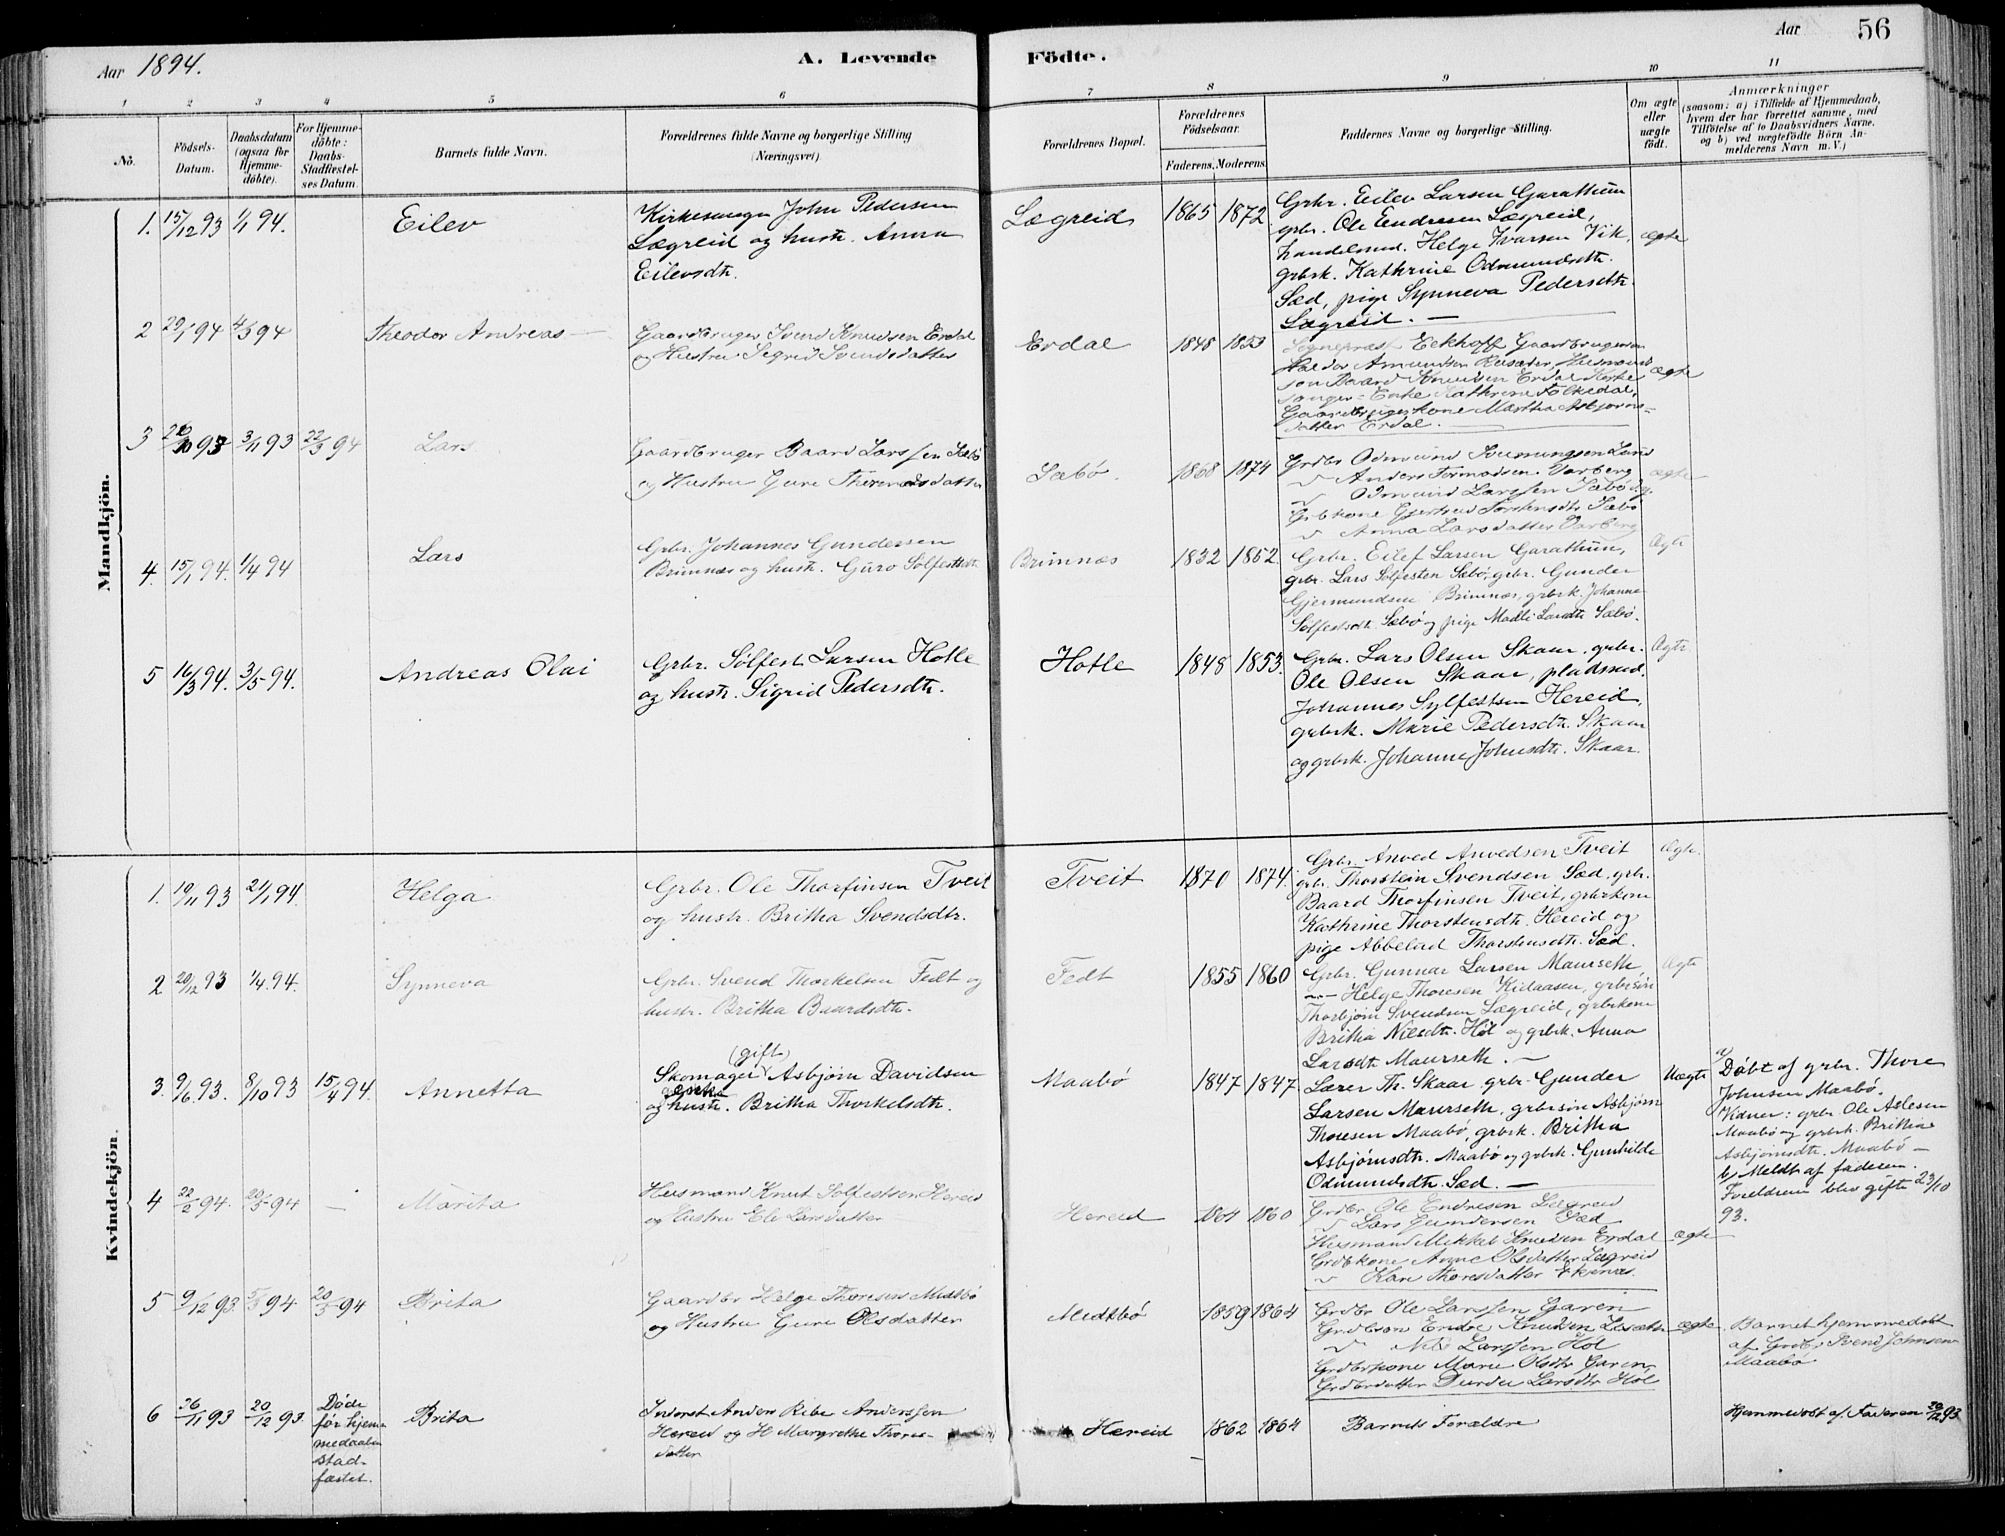 Aar 1894.
A. Levende Födte.
Aar
56
1 2 3 4 5 6 7 8 9 10 11
No.
Födsels-
Datum.
Daabsdatum
(ogsaa for
Hjemme-
döbte).
For Hjemme-
döbte:
Daabs-
Stadfæstel-
ses Datum.
Barnets fulde Navn.
Forældrenes fulde Navne og borgerlige Stilling
(Næringsvei).
Forældrenes Bopæl.
Forældrenes
Födselsaar.
Faderens. Moderens.
Faddernes Navne og borgerlige Stilling.
Om ægte
eller
uægte
født.
Anmærkninger
(saasom: a) i Tilfælde af Hjemmedaab,
hvem der har forrettet samme, med
Tilföielse af to Daabsvidners Navne.
og b) ved uægtefödte Börn An-
melderens Navn m. V.)
Mandkjön.
1. 15/12 93 1/1 94.
Eilev
Kirkesanger John Pedersen
Lægreid og hustr. Anna
Eilevsdtr.
Lægreid
1865 1872
Grbr. Eilev Larsen Garathun
grbr. Ole Endresen Lægreid,
handelsmd. Helge Ivarsen Vik,
grbrk. Kathrine Odmundsdtr.
Sæd, pige Synneva Pedersdtr.
Lægreid. —
ægte
2 29/1 94 4/3 94
Theodor Andreas
Gaardbruger Svend Knudsen Erdal
og Hustru Segrid Svendsdatter
Erdal
1848 1853
Sognepræst Eekhoff Gaardbrugerson
Haldor Amundsen Reisæter, Husmand
son Baard Knudsen Erdal Kirke
sanger-Enke Kathrine Folkedal,
Gaardbrugerkone Martha Asbjørns-
datter Erdal.
ægte
3 93 3/11 93 22/3 94
Lars
Gaardbruger Baard Larssen Sæbø
og Hustru Guri Thormodsdatter
Sæbø.
1868 1874
Grdbr Odmund Lund
" Anders Tormodsen Varberg
" Odmund Larssen Sæbø
Grbkone Gjertrud Torstensdtr Sæbø
" Anna Larsdatter Varberg
ægte
4. 15/1 94. 1/4 94
Lars
Grbr. Johannes Gundersen
Brimnæs og hustr. Guro Solfestsdtr
Brimnæs
1832 1852.
Grbr. Eilef Larsen Garathun,
grbr. Lars Solfesten Sæbø, grbr. Gunder
Gjermundsen Brimnæs, grbrk. Johanna
Solfestsdtr. Sæbø og pige Madli Larsdtr Sæbø.
Ægte
5 16/3 94. 3/5 94.
Andreas Olai
Grbr. Sølfest Larsen Hotle
og hustr. Sigrid Pedersdtr.
Hotle
1848 1853.
Grbr. Lars Olsen Skaar, grbr.
Ole Olsen Skaar, pladsmd.
Johannes Sylfestsen Hereid,
grbrk. Marie Pedersdtr. Skaar
og grbrk. Johanne Johnsdtr. Skaar.
Ægte
Kvindekjön.
1. 19/11 93 21/1 94.
Helga
Grbr. Ole Thorfinsen Tveit
og hustr. Britha Svendsdtr.
Tveit
1870 1874.
Grbr. Anved Anvedsen Tveit
grbr. Thorstein Svendsen Sæd, grbr.
Baard Thorfinsen Tveit, grbrkone
Kathrine Thorstensdtr. Hereid og
pige Abbelad Thorstensdtr. Sæd.
Ægte
2 20/12 93 1/4 94.
Synneva
Grbr. Svend Thorkelsen Fedt og
hustr. Britha Baardsdtr.
Fedt
1855 1860
Grbr. Gunnar Larsen Maurseth
—"— Helge Thoresen Kidaasen, grbrsøn
Thorbjørn Svendsen Lægreid, grbrkone
Britha Nilsdtr. Høl og grbrk. Anna
Larsdtr Maurseth. —
Ægte
3. 9/6 93. 8/10 93 15/4 94.
Annetta
(gift)
Skomager Asbjørn Davidsen
og hustr. Britha Thorkelsdtr.
Maabø
1847 1847.
Lærer Th. Skaar grbr. Gunder
Larsen Maurseth, grbrsøn Asbjørn
Thoresen Maabø, grbrk. Britha
Asbjørnsdtr. Maabø og grbrk. Gunhilde
Odmundsdtr. Sæd. —
Uægte
a/ Døbt af grbr. Thore
Johnsen Maabø.
Vidner: grbr Ole Aslesen
Maabø og grbrk. Britha
Asbjørnsdtr. Maabø —
b/ Meldt af faderen.
Foreldrene blev gifte 23/10
93.
4 22/2 94. 94 —
Marita
Husmand Knut Solfestsen Hereid
og Hustru Eli Larsdatter
Hereid
1864 1860
Grdbr Ole Endresen Legreid
" Lars Gundersen Sæd
Husmand Mikkel Knudsen Erdal
Grdbrkone Anne Olsdatter Legreid
" Kari Thoresdatter
ægte
5 9/12 93. 94 20/5 94
Brita
Gaardbr Helge Thoresen Midtbø
og Hustru Guri Olsdatter
Midtbø
1859 1864
Grdbr Ole Larssen Garen
Grdbrson Endre Knudsen
" Nils Larssen Höl
Grdbrkone Mari Olsdtr Garen,
Grdbrdatter Durdei Larsdtr Höl
ægte
Barnet hjemmedøbt
af Grdbr Svend Johnsen
Maabø
6 26/11 93 20/12 93.
Døde
før hjem
medaaben
stad-
fæstet.
Brita
Inderst Anders Anderssen
Hereid og H Margrethe Thores-
datter
Hereid
1862 1864
Barnets Forældre
Hjemmedøbt af Faderen 20/12 93